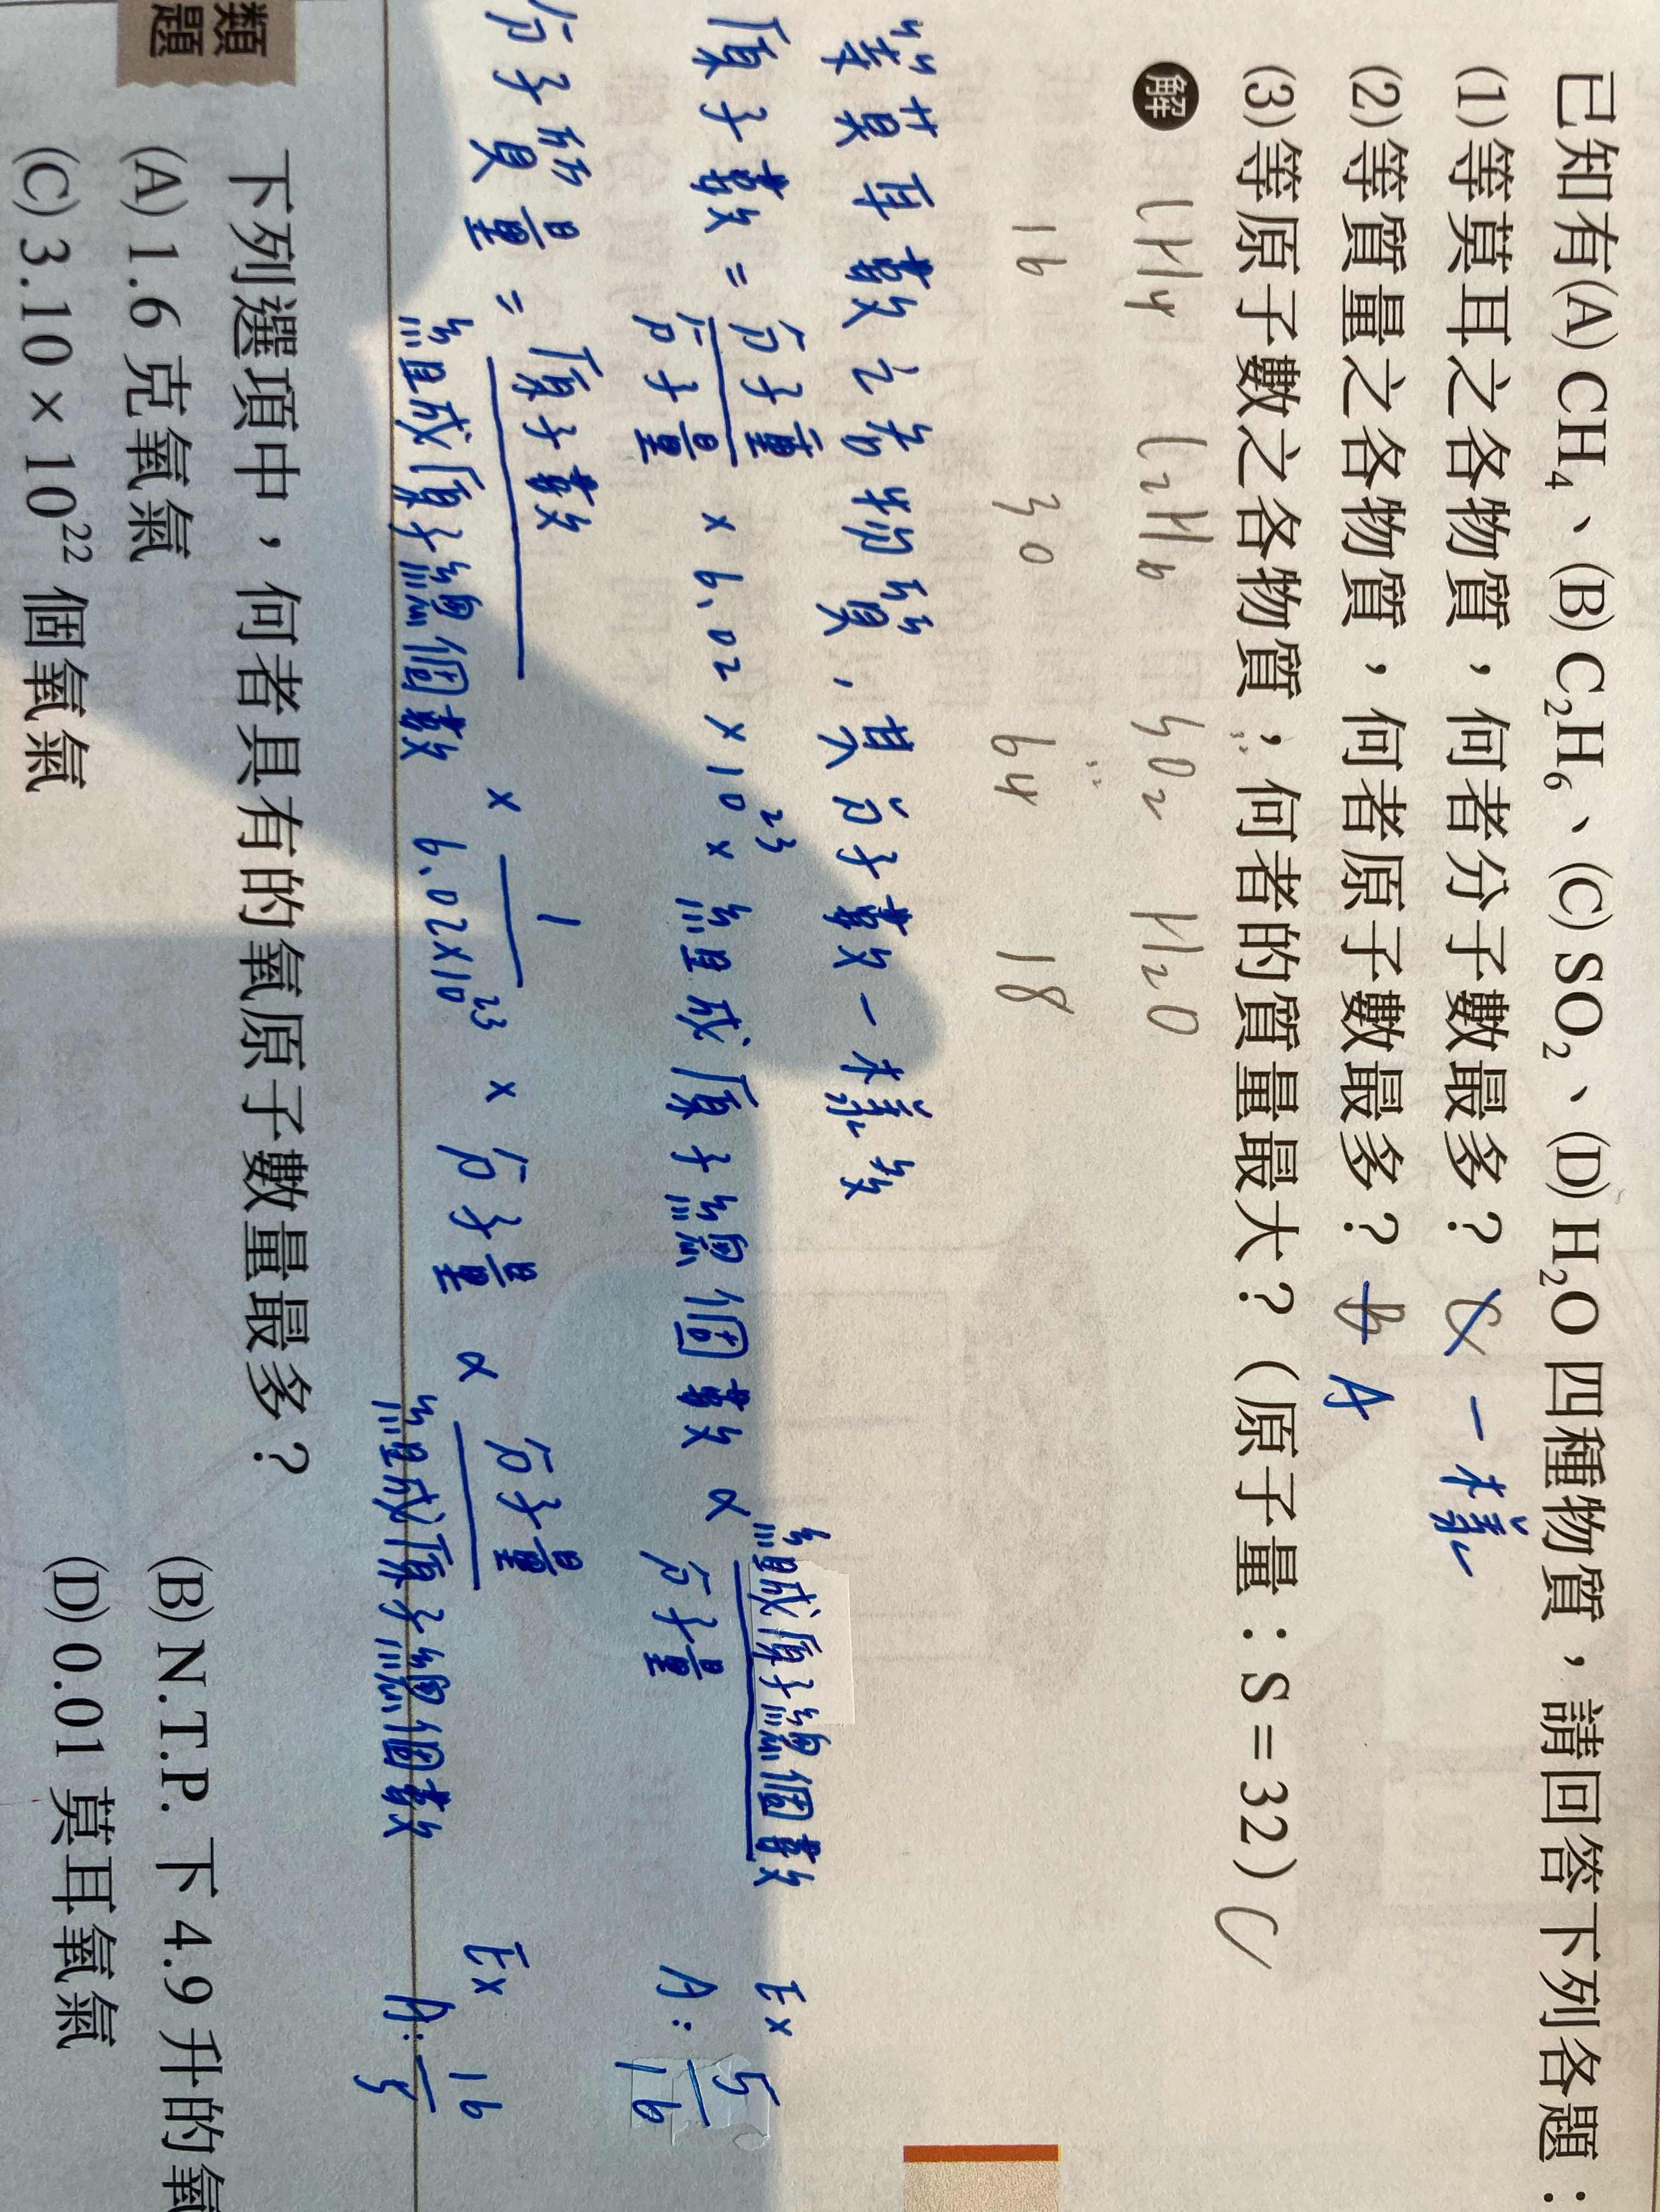 已知有(A) CH₄、(B) C₂H₆、(C) SO₂、(D) H₂O 四種物質，請回答下列各題：
(1)等莫耳之各物質，何者分子數最多？ 一樣
(2)等質量之各物質，何者原子數最多？ A
(3)等原子數之各物質，何者的質量最大？（原子量：S = 32） C
解 CH4 C2H6 SO2 H2O
16 30 64 18
等莫耳數之各物質，其分子數一樣多
原子數 = 分子重/分子量 × 6.02 × 10²³ × 組成原子總個數 α 組成原子總個數/分子量 Ex A: 5/16
分子質量 = 原子數/組成原子總個數 × 1/6.02×10²³ × 分子量 α 分子量/組成原子總個數 Ex A: 16/5
類題
下列選項中，何者具有的氧原子數量最多？
(A) 1.6 克氧氣 (B) N.T.P. 下 4.9 升的氧
(C) 3.10 × 10²² 個氧氣 (D) 0.01 莫耳氧氣